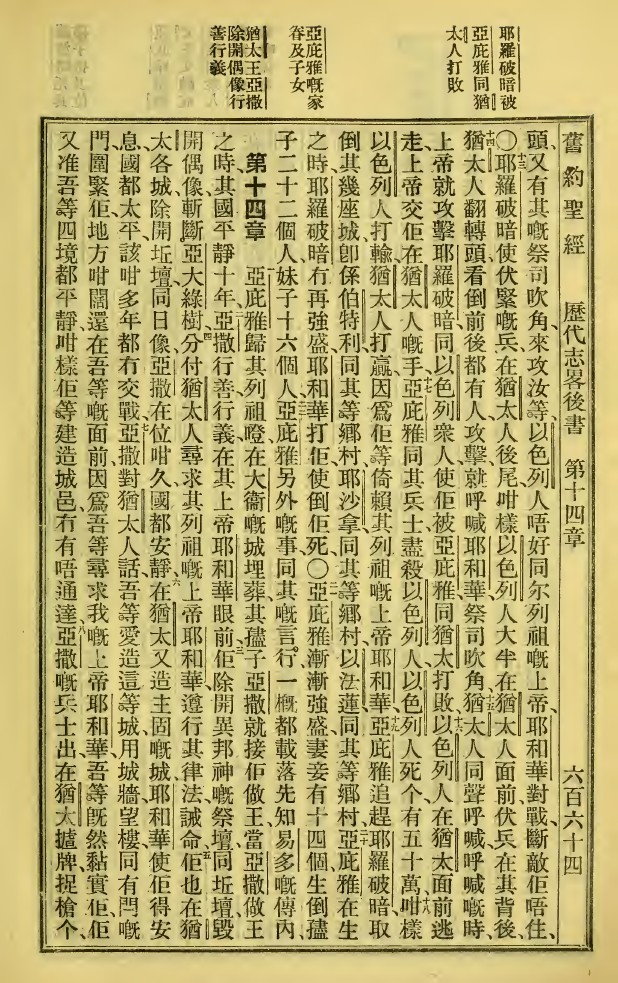 耶羅破暗被
亞庇雅同猶
太人打敗
亞庇雅嘅家
眷及子女
猶太王亞撒
除開偶像行
善行義
舊約聖經 歷代志畧後書 第十四章 六百六十四
頭、又有其嘅祭司吹角、來攻汝等、以色列人唔好同尔列祖嘅上帝耶和華對戰、斷敵佢唔住、
十三〇耶羅破暗使伏緊嘅兵、在猶太人後尾、咁樣以色列人大半在猶太人面前、伏兵在其背後、
十四猶太人翻轉頭看倒前後都有人攻擊、就呼喊耶和華、祭司吹角、十五猶太人同聲呼喊、呼喊嘅時、
上帝就攻擊耶羅破暗同以色列衆人、使佢被亞庇雅同猶太打敗、十六以色列人在猶太面前逃
走、上帝交佢在猶太人嘅手、十七亞庇雅同其兵士盡殺以色列人、以色列人死个有五十萬、十八咁樣
以色列人打輸、猶太人打贏、因爲佢等倚賴其列祖嘅上帝耶和華、十九亞庇雅追趕耶羅破暗、取
倒其幾座城、卽係伯特利同其等鄉村、耶沙拿同其等鄉村、以法蓮同其等鄉村、二十亞庇雅在生
之時、耶羅破暗冇再強盛、耶和華打佢使倒佢死、〇二一亞庇雅漸漸強盛、妻妾有十四個、生倒孻
子二十二個人、妹子十六個人、二二亞庇雅另外嘅事、同其嘅言行、一概都載落先知易多嘅傳內、
第十四章 一亞庇雅歸其列祖、瞪在大衞嘅城埋葬、其孻子亞撒就接佢做王、當亞撒做王
之時、其國平靜十年、二亞撒行善行義、在其上帝耶和華眼前、三佢除開異邦神嘅祭壇、同坵壇、毀
開偶像、斬斷亞大綠樹、四分付猶太人尋求其列祖嘅上帝耶和華、遵行其律法誡命、五佢也在猶
太各城、除開坵壇同日像、亞撒在位咁久、國都安靜、六在猶太又造王固嘅城、耶和華使佢得安
息、國都太平、該咁多年都冇交戰、七亞撒對猶太人話、吾等愛造這等城、用城牆望樓、同有門嘅
門圍緊佢、地方咁闊還在吾等嘅面前、因爲吾等尋求我嘅上帝耶和華、吾等旣然黏實佢、佢
又准吾等四境都平靜、咁樣佢等建造城邑、冇有唔通達、八亞撒嘅兵士、出在猶太㩼牌捉槍个、